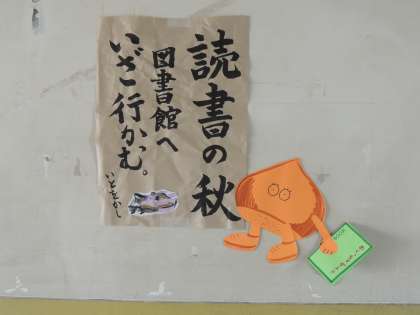 読書の秋
図書館へ
いざ行かむ。
いとをかし